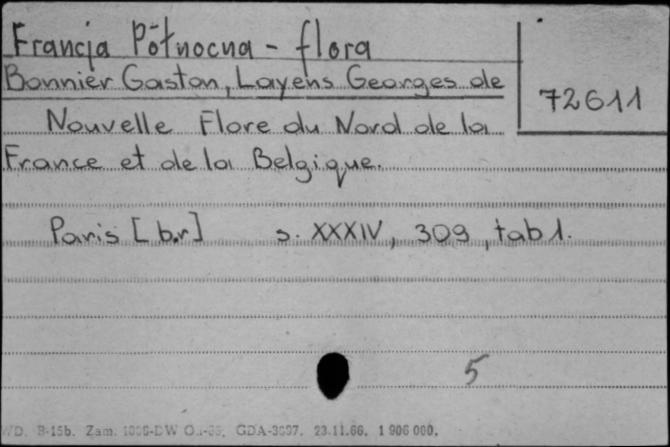 Francja Północna - flora
Bonnier Gaston, Layens Georges de
72611
Nouvelle Flore du Nord de la
France et de la Belgique.
Paris [b.r] s. XXXIV, 309, tab 1.
5
WD. B-15b. Zam. GDA-3697. 23.11.66. 1 906 000.